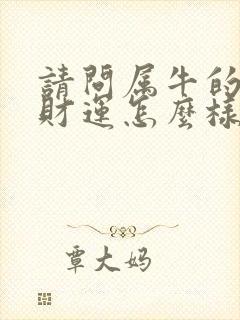 請問属牛的
財運怎麼樣
覃大妈